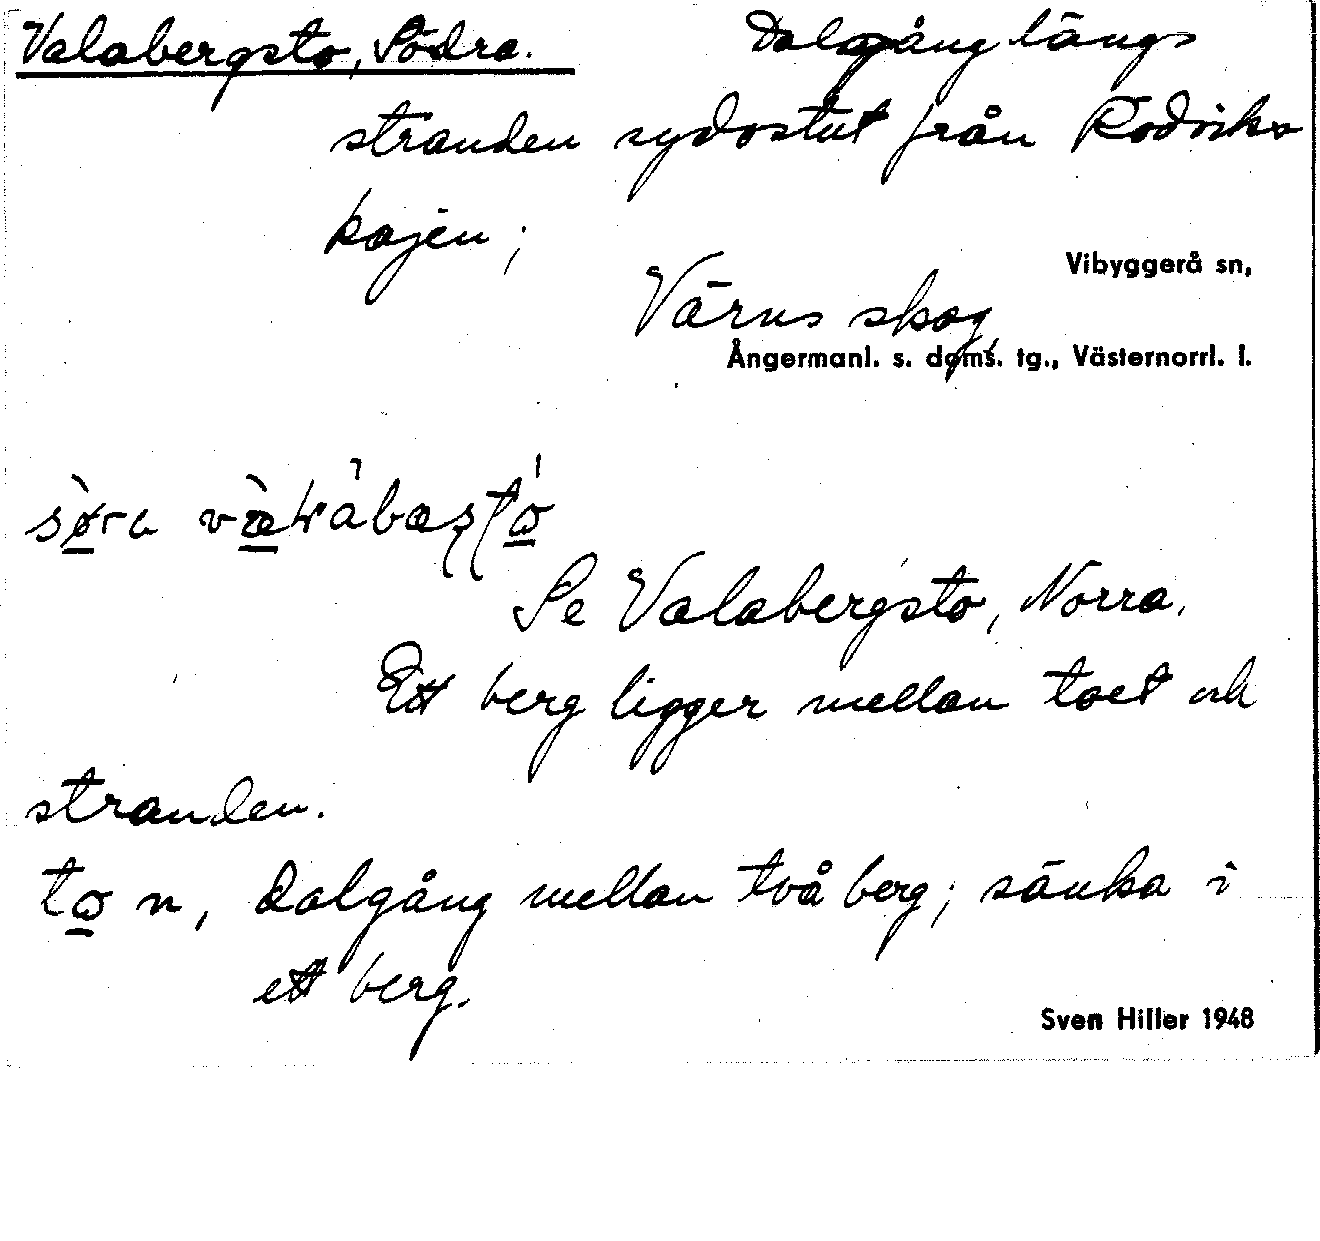 Valabergsto, Södra. Dalgång längs
stranden sydostut från Rödviks
kajen;
Vibyggerå sn,
Värns skog,
Ångermanl. s. doms. tg., Västernorrl. l.
Se Valabergsto, Norra.
Ett berg ligger mellan toet och
stranden.
to n, dalgång mellan två berg; sänka i
ett berg.
Sven Hiller 1948